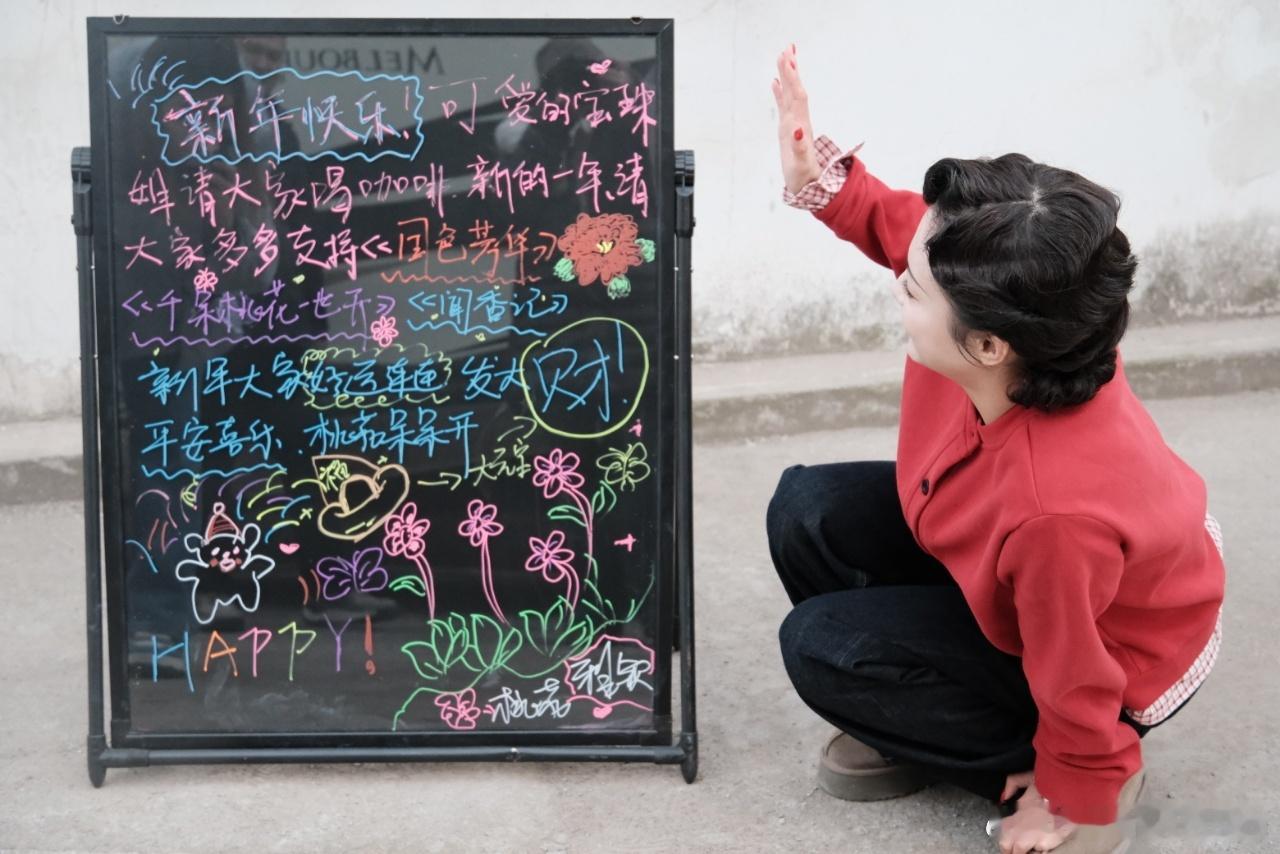 MELBOU
新年快乐! 可爱的宝珠
姐请大家喝咖啡.新的一年,请
大家多多支持《国色芳华》
《千朵桃花一世开》《闻香记》
新年大家好运连连 发大财!
平安喜乐、桃花朵朵开
→大元宝
HAPPY!